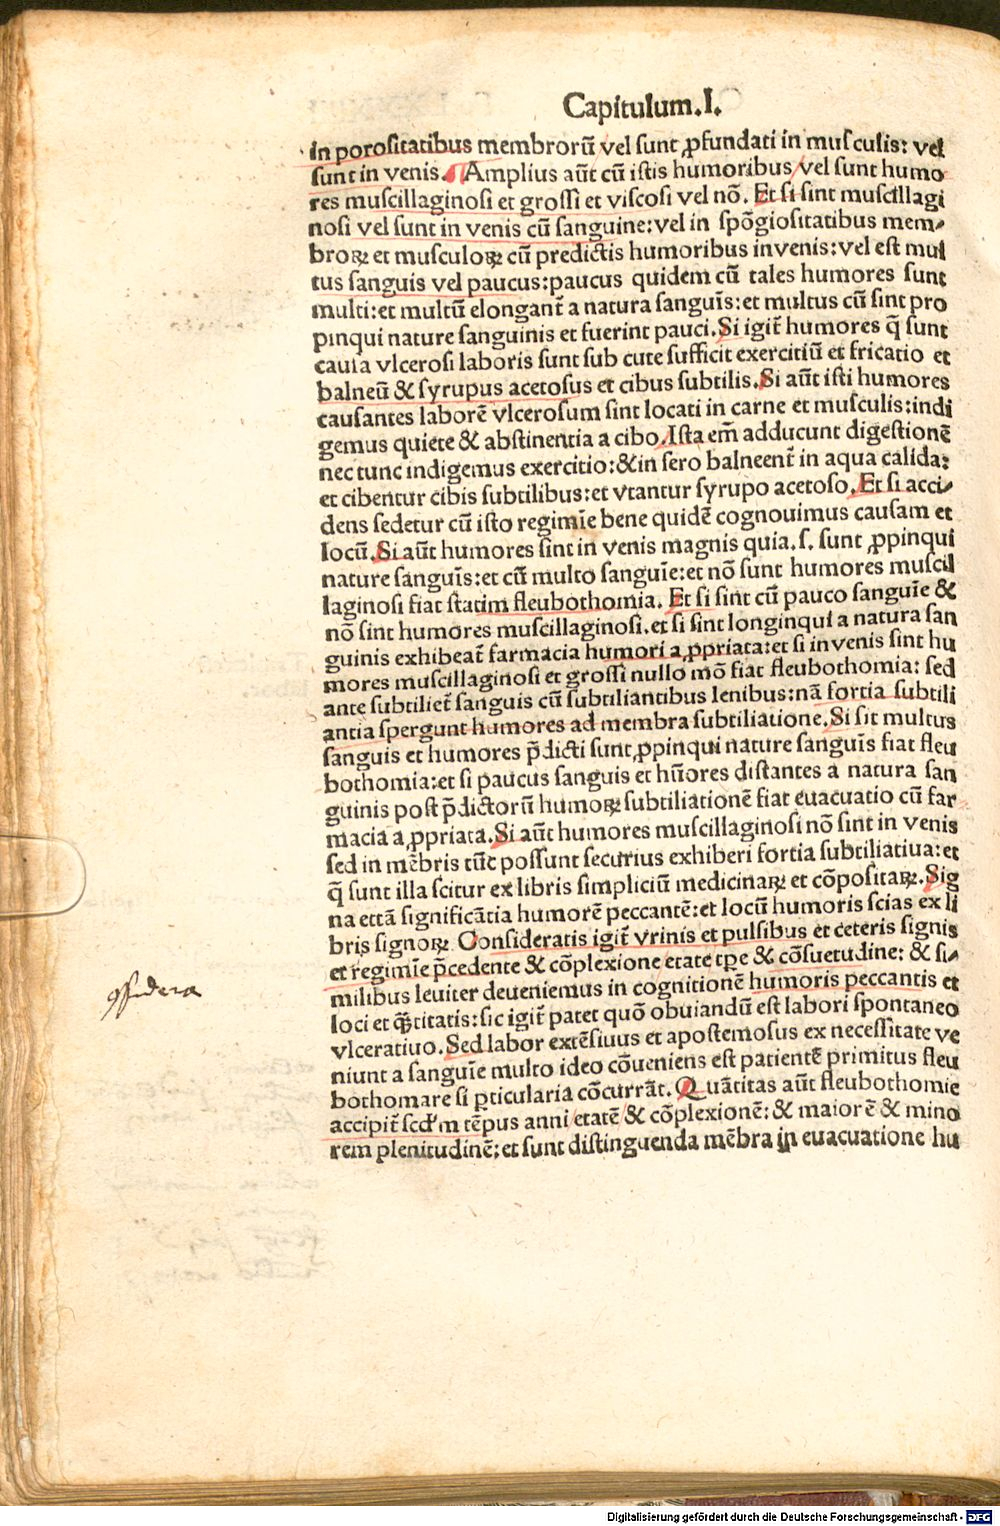 Capitulum.I.
in porositatibus membrorū vel sunt ꝓfundati in musculis: vel
sunt in venis. Amplius aūt cū istis humoribus vel sunt humo
res muscillaginosi et grossi et viscosi vel nō. Et si sint muscillagi
nosi vel sunt in venis cū sanguine: vel in spōgiositatibus mem-
broꝝ et musculoꝝ cū predictis humoribus in venis: vel est mul
tus sanguis vel paucus: paucus quidem cū tales humores sunt
multi: et multū elongant̄ a natura sanguīs: et multus cū sint pro
pinqui nature sanguinis et fuerint pauci. Si igit̄ humores q̄ sunt
causa vlcerosi laboris sunt sub cute sufficit exercitiū et fricatio et
balneū & syrupus acetosus et cibus subtilis. Si aūt isti humores
causantes laborē vlcerosum sint locati in carne et musculis: indi
gemus quiete & abstinentia a cibo. Ista em̄ adducunt digestionē
nec tunc indigemus exercitio: & in sero balneent̄ in aqua calida:
et cibentur cibis subtilibus: et vtantur syrupo acetoso. Et si acci-
dens sedetur cū isto regimīe bene quidē cognouimus causam et
locū. Si aūt humores sint in venis magnis quia .s. sunt ꝓpinqui
nature sanguīs: et cū multo sanguīe: et nō sunt humores muscil
laginosi fiat statim fleubothomia. Et si sint cū pauco sanguīe &
nō sint humores muscillaginosi. et si sint longinqui a natura san
guinis exhibeat̄ farmacia humori a ꝓpriata: et si in venis sint hu
mores muscillaginosi et grossi nullo mō fiat fleubothomia: sed
ante subtiliet̄ sanguis cū subtiliantibus lenibus: nā fortia subtili
antia spergunt humores ad membra subtiliatione. Si sit multus
sanguis et humores p̄dicti sunt ꝓpinqui nature sanguīs fiat fleu
bothomia: et si paucus sanguis et hūores distantes a natura san
guinis post p̄dictorū humoꝝ subtiliationē fiat euacuatio cū far
macia a ꝓpriata. Si aūt humores muscillaginosi nō sint in venis
sed in mēbris tūc possunt securius exhiberi fortia subtiliatiua: et
q̄ sunt illa scitur ex libris simpliciū medicinaꝝ et cōpositaꝝ. Sig
na ettā significātia humorē peccantē: et locū humoris scias ex li
bris signoꝝ Consideratis igit̄ vrinis et pulsibus et ceteris signis
et regimīe p̄cedente & cōplexione etate tꝑe & cōsuetudine: & si-
milibus leuiter deueniemus in cognitionē humoris peccantis et
loci et q̄titatis: sic igit̄ patet quō obuiandū est labori spontaneo
vlceratiuo. Sed labor extēsiuus et apostemosus ex necessitate ve
niunt a sanguīe multo ideo cōueniens est patientē primitus fleu
bothomare si ꝑticularia cōcurrāt. Quātitas aūt fleubothomie
accipit̄ scd'm tēpus anni etatē & cōplexionē: & maiorē & mino
rem plenitudinē: et sunt distinguenda mēbra in euacuatione hu
ꝯsidera
Digitalisierung gefördert durch die Deutsche Forschungsgemeinschaft - DFG